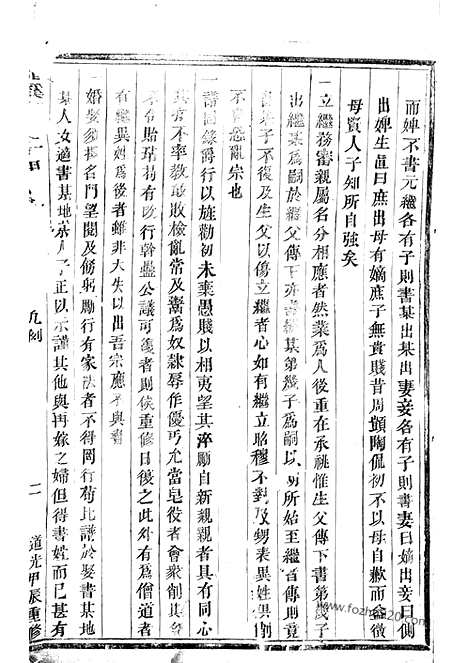 而婢不書元繼各有子則書某出某出妻妾各有子則書妻曰嫡出妾曰側
出婢生直曰庶出母有嫡庶子無貴賤昔周顗陶侃初不以母自歉而益徵
母賢人子知所自強矣
一立繼務審親屬名分相應者然業為人後重在承祧惟生父傳下書第幾子
出繼某為嗣於繼父傳下亦書繼某第幾子為嗣以明所始至繼者傳則竟
書子不復及生父以傷立繼者心如有繼立昭穆不對及甥表異姓俱削
不書恐亂宗也
一書回錄爵行以旌勸初未棄愚賤以相夷望其淬勵自新親親者具有同心
其有不率教敗檢亂常及鬻為奴隸辱作優丐允當皂役者會衆削其
名右貽瑞揚有改行幹蠱公議可復者則俟重修日復之此外有為僧道者
有繼異姓為後者雖非大失以出吾宗應不與書
一婚娶須擇名門望閥及飭躬勵行有家法者不得同行苟比謹於娶書某地
某人女適書某地某人子正以示謹其他與再嫁之婦但得書姓而已甚有
凡例
二
道光甲辰重修
www.fozhu920.com